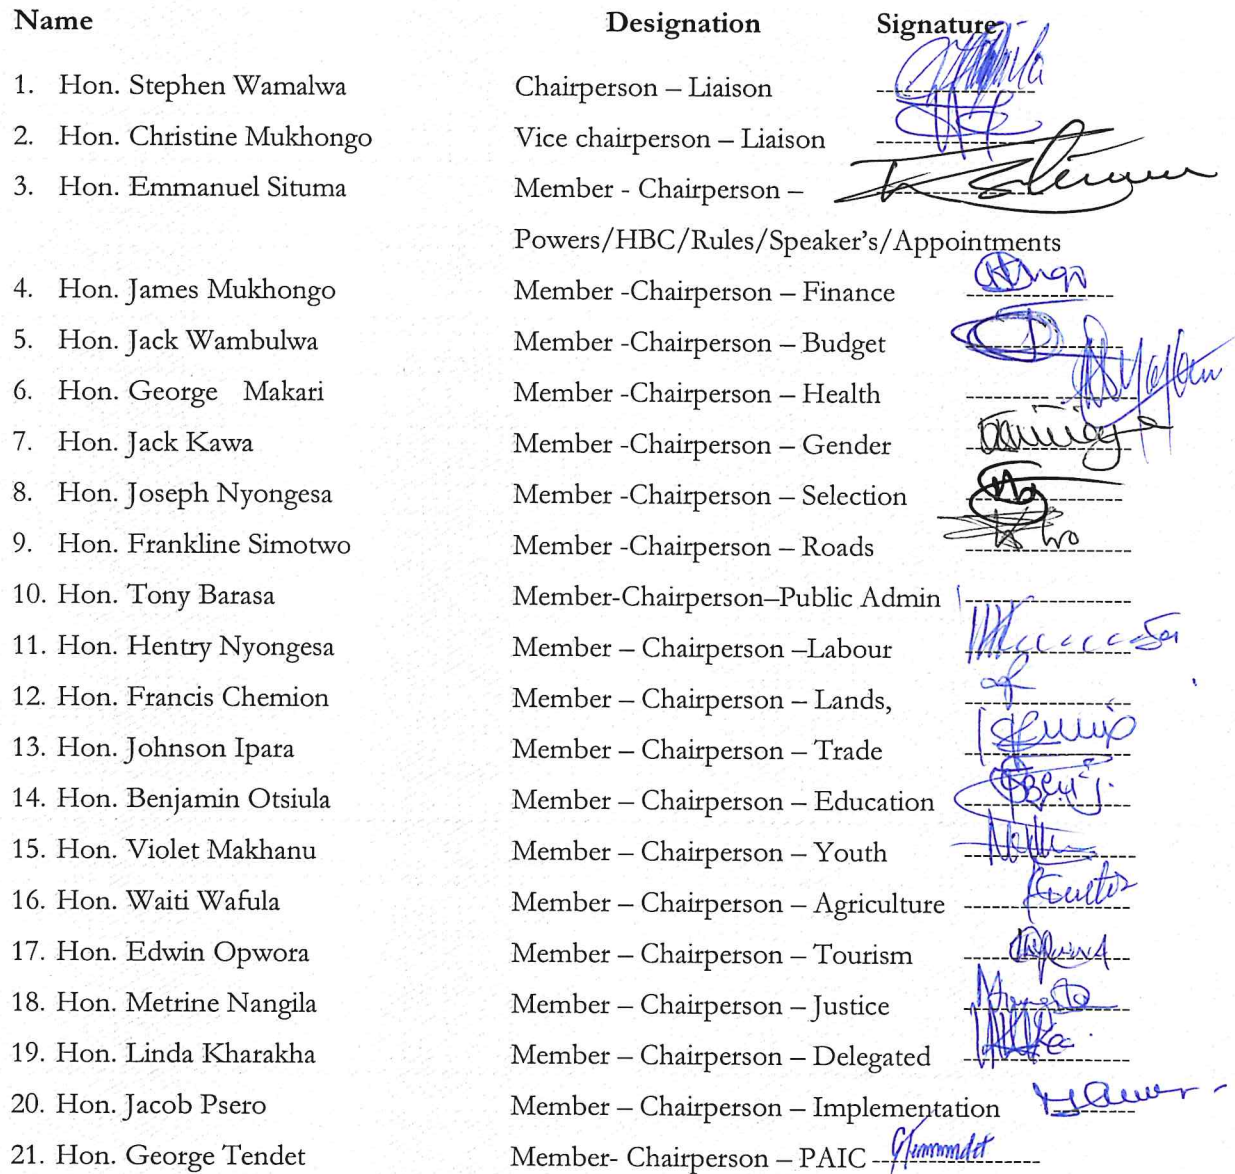 Name Designation Signature
1. Hon. Stephen Wamalwa Chairperson – Liaison
2. Hon. Christine Mukhongo Vice chairperson – Liaison
3. Hon. Emmanuel Situma Member - Chairperson –
Powers/HBC/Rules/Speaker's/Appointments
4. Hon. James Mukhongo Member -Chairperson – Finance
5. Hon. Jack Wambulwa Member -Chairperson – Budget
6. Hon. George Makari Member -Chairperson – Health
7. Hon. Jack Kawa Member -Chairperson – Gender
8. Hon. Joseph Nyongesa Member -Chairperson – Selection
9. Hon. Frankline Simotwo Member -Chairperson – Roads
10. Hon. Tony Barasa Member-Chairperson–Public Admin
11. Hon. Hentry Nyongesa Member – Chairperson –Labour
12. Hon. Francis Chemion Member – Chairperson – Lands,
13. Hon. Johnson Ipara Member – Chairperson – Trade
14. Hon. Benjamin Otsiula Member – Chairperson – Education
15. Hon. Violet Makhanu Member – Chairperson – Youth
16. Hon. Waiti Wafula Member – Chairperson – Agriculture
17. Hon. Edwin Opwora Member – Chairperson – Tourism
18. Hon. Metrine Nangila Member – Chairperson – Justice
19. Hon. Linda Kharakha Member – Chairperson – Delegated
20. Hon. Jacob Psero Member – Chairperson – Implementation
21. Hon. George Tendet Member- Chairperson – PAIC